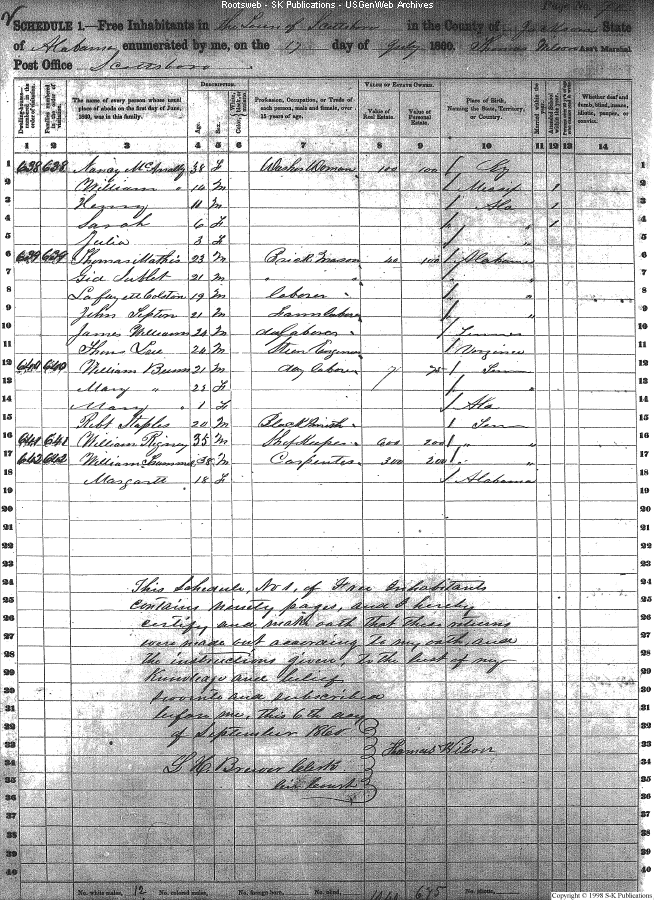 Rootsweb - SK Publications - USGenWeb Archives
Page No.
SCHEDULE 1.—Free Inhabitants in the Town of Scottsboro in the County of Jackson State
of Alabama enumerated by me, on the 17 day of July 1860. Thomas Wilson Ass't Marshal
Post Office Scottsboro
Dwelling-houses numbered in the order of visitation. Families numbered in the order of visitation. The name of every person whose usual place of abode on the first day of June, 1860, was in this family. DESCRIPTION. Age. Sex. Color, White, black, or mulatto. Profession, Occupation, or Trade of each person, male and female, over 15 years of age. VALUE OF ESTATE OWNED. Value of Real Estate. Value of Personal Estate. Place of Birth, Naming the State, Territory, or Country. Married within the year. Attended School within the year. Whether deaf and dumb, blind, insane, idiotic, pauper, or convict.
1 2 3 4 5 6 7 8 9 10 11 12 13 14
1 638 638 Nancy 38 f Washer Woman 100 100 Ky 1
2 William " 14 m Missip 1 2
3 Henry 11 m Ala 1 3
4 Sarah 6 f " 1 4
5 Julia 3 f " 5
6 639 639 Thomas Mathis 23 m Brick Mason 40 100 Alabama 6
7 Gid Sublet 21 m " " 7
8 Lafayette Colston 19 m laborer " 8
9 John Tipton 21 m Farm labor " 9
10 James Williams 24 m day laborer 10
11 24 m Virginia 11
12 640 640 William 21 m day laborer 7 25 Tenn 12
13 Mary " 23 f " 13
14 Mary " 1 f Ala 14
15 Robt Staples 20 m Black Smith Tenn 15
16 641 641 William Rigney 35 m Shopkeeper 600 200 " " 16
17 642 642 William 38 m Carpenter 300 200 " " 17
18 Margarett 18 f Alabama 18
19 19
20 20
21 21
22 22
23 23
24 This Schedule, No 1, of Free Inhabitants 24
25 contains ninety pages, and I hereby 25
26 certify and make oath that these returns 26
27 were made out according to my oath and 27
28 the instructions given, to the best of my 28
29 Knowledge and belief 29
30 and subscribed 30
31 before me, this 6th day 31
32 of September 1860 32
33 Thomas Wilson 33
34 Brewer Clerk 34
35 Court 35
36 36
37 37
38 38
39 39
40 40
No. white males, 12 No. colored males, No. foreign born, No. blind, 675 No. idiotic,
Copyright © 1998 S-K Publications